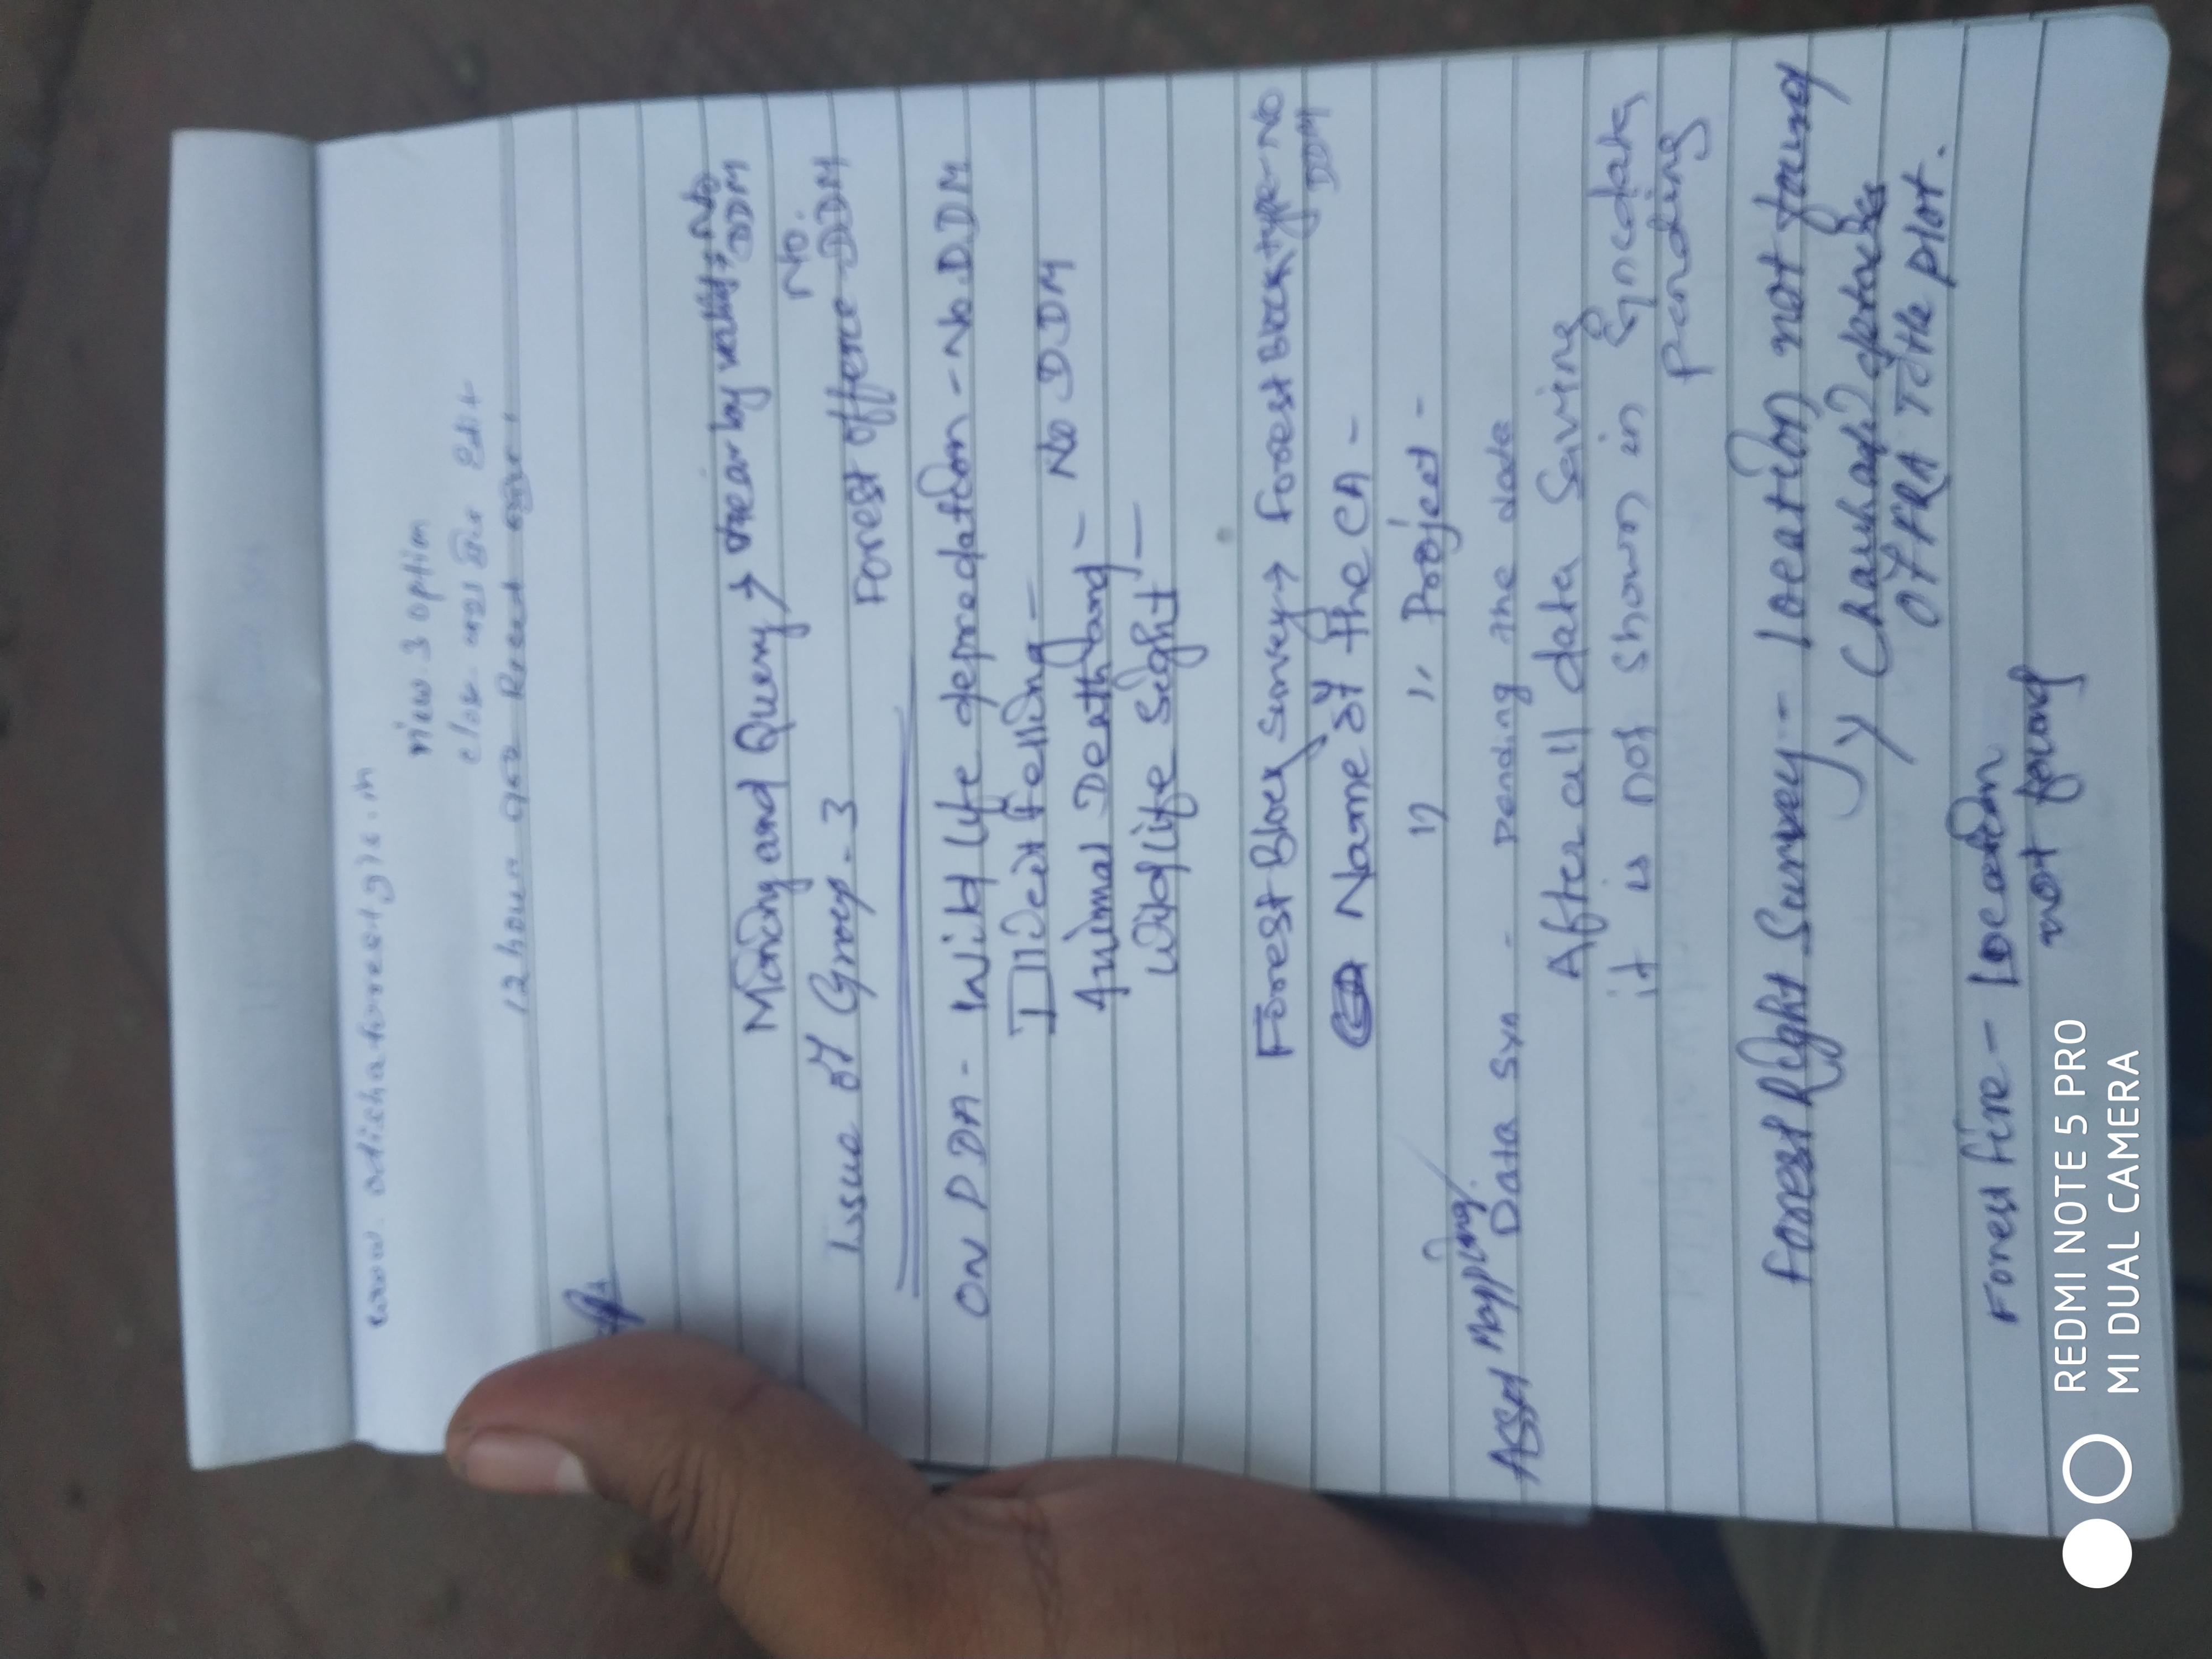 www.odishaforestgis.in
view 3 option
12 hour
Mining and Query → near by
No DDM
Issue of Group - 3
No.
Forest offence DDM
ON PDA - Wild life depredation - No. DDM
Illicit felling -
Animal Death and - No DDM
Wild life Sight -
Forest Block survey → Forest Block type - No
DDM
Name of the CA -
" " Project -
Asset Mapping.
Data Syn - pending the data
After all data Saving
it is not shown in Syncdata
pending
Forest Right Survey - location not found
y Chauhadi details
of FRA Title plot.
Forest fire - location
not found
REDMI NOTE 5 PRO
MI DUAL CAMERA